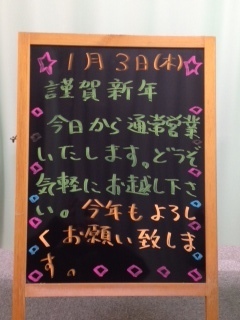 1月3日(木)
謹賀新年
今日から通常営業
いたします。どうぞ
気軽にお越し下さ
い。今年もよろし
くお願い致しま
す。